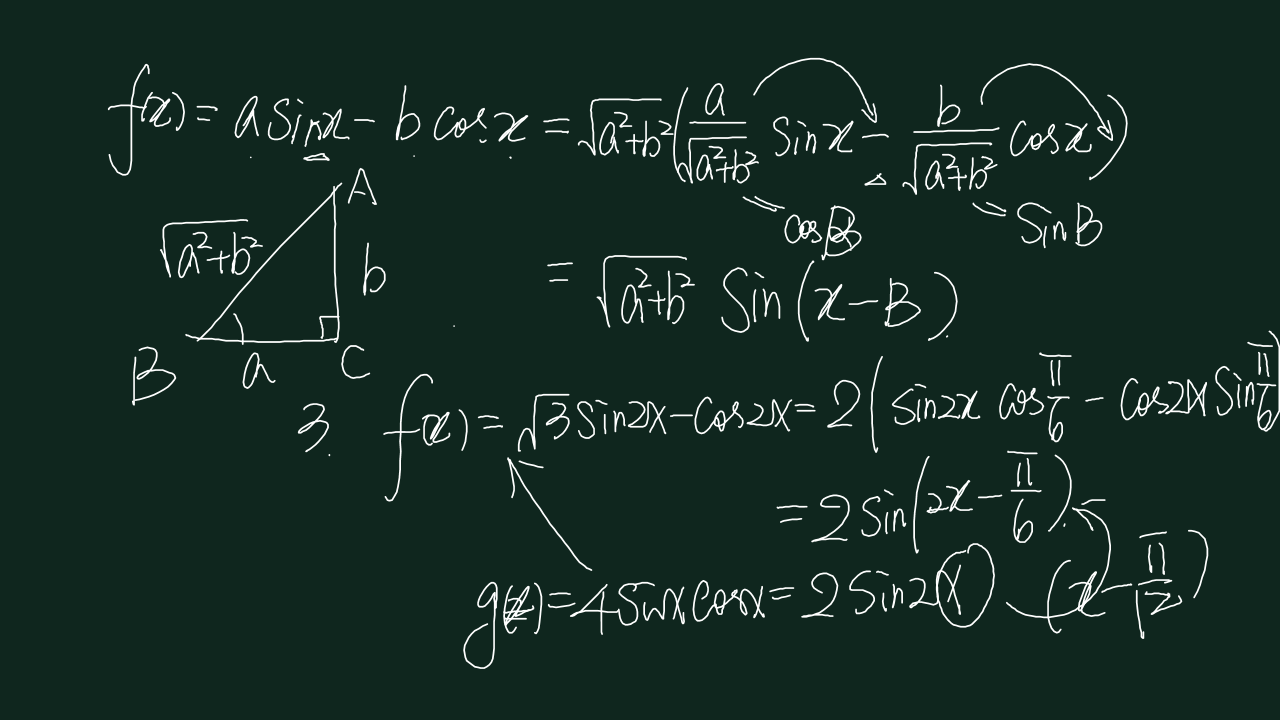 f(x) = a sin x - b cos x = √(a²+b²) ( a/√(a²+b²) sin x - b/√(a²+b²) cos x )
= cos B = sin B
= √(a²+b²) sin (x - B)
A
√(a²+b²) b
B a C
3. f(x) = √3 sin2x - cos2x = 2( sin2x cos π/6 - cos2x sin π/6
= 2 sin(2x - π/6)
g(x) = 4 sinx cosx = 2 sin2x (x - π/12)